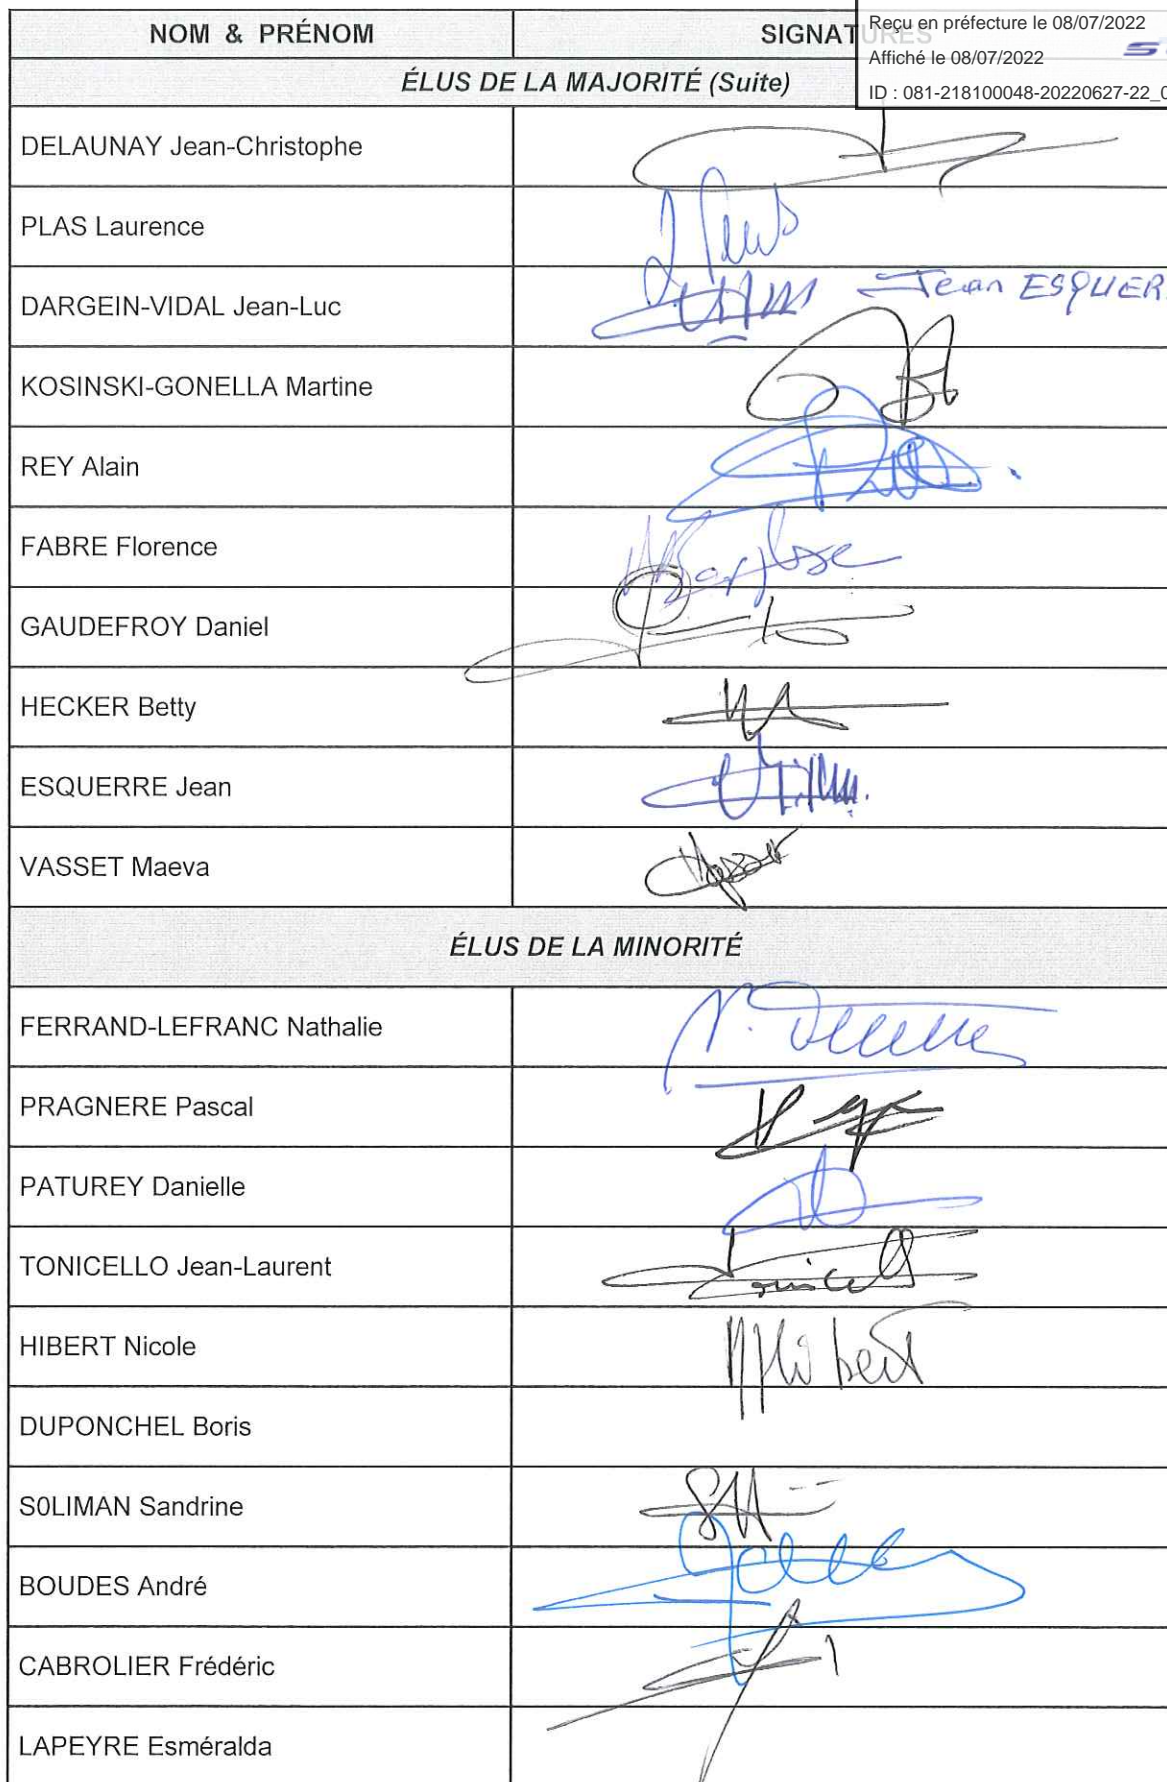 NOM & PRÉNOM SIGNATURES
Reçu en préfecture le 08/07/2022
Affiché le 08/07/2022
ID : 081-218100048-20220627-22_0
ÉLUS DE LA MAJORITÉ (Suite)
DELAUNAY Jean-Christophe
PLAS Laurence
DARGEIN-VIDAL Jean-Luc Jean ESQUER
KOSINSKI-GONELLA Martine
REY Alain
FABRE Florence
GAUDEFROY Daniel
HECKER Betty
ESQUERRE Jean
VASSET Maeva
ÉLUS DE LA MINORITÉ
FERRAND-LEFRANC Nathalie
PRAGNERE Pascal
PATUREY Danielle
TONICELLO Jean-Laurent
HIBERT Nicole
DUPONCHEL Boris
S0LIMAN Sandrine
BOUDES André
CABROLIER Frédéric
LAPEYRE Esméralda